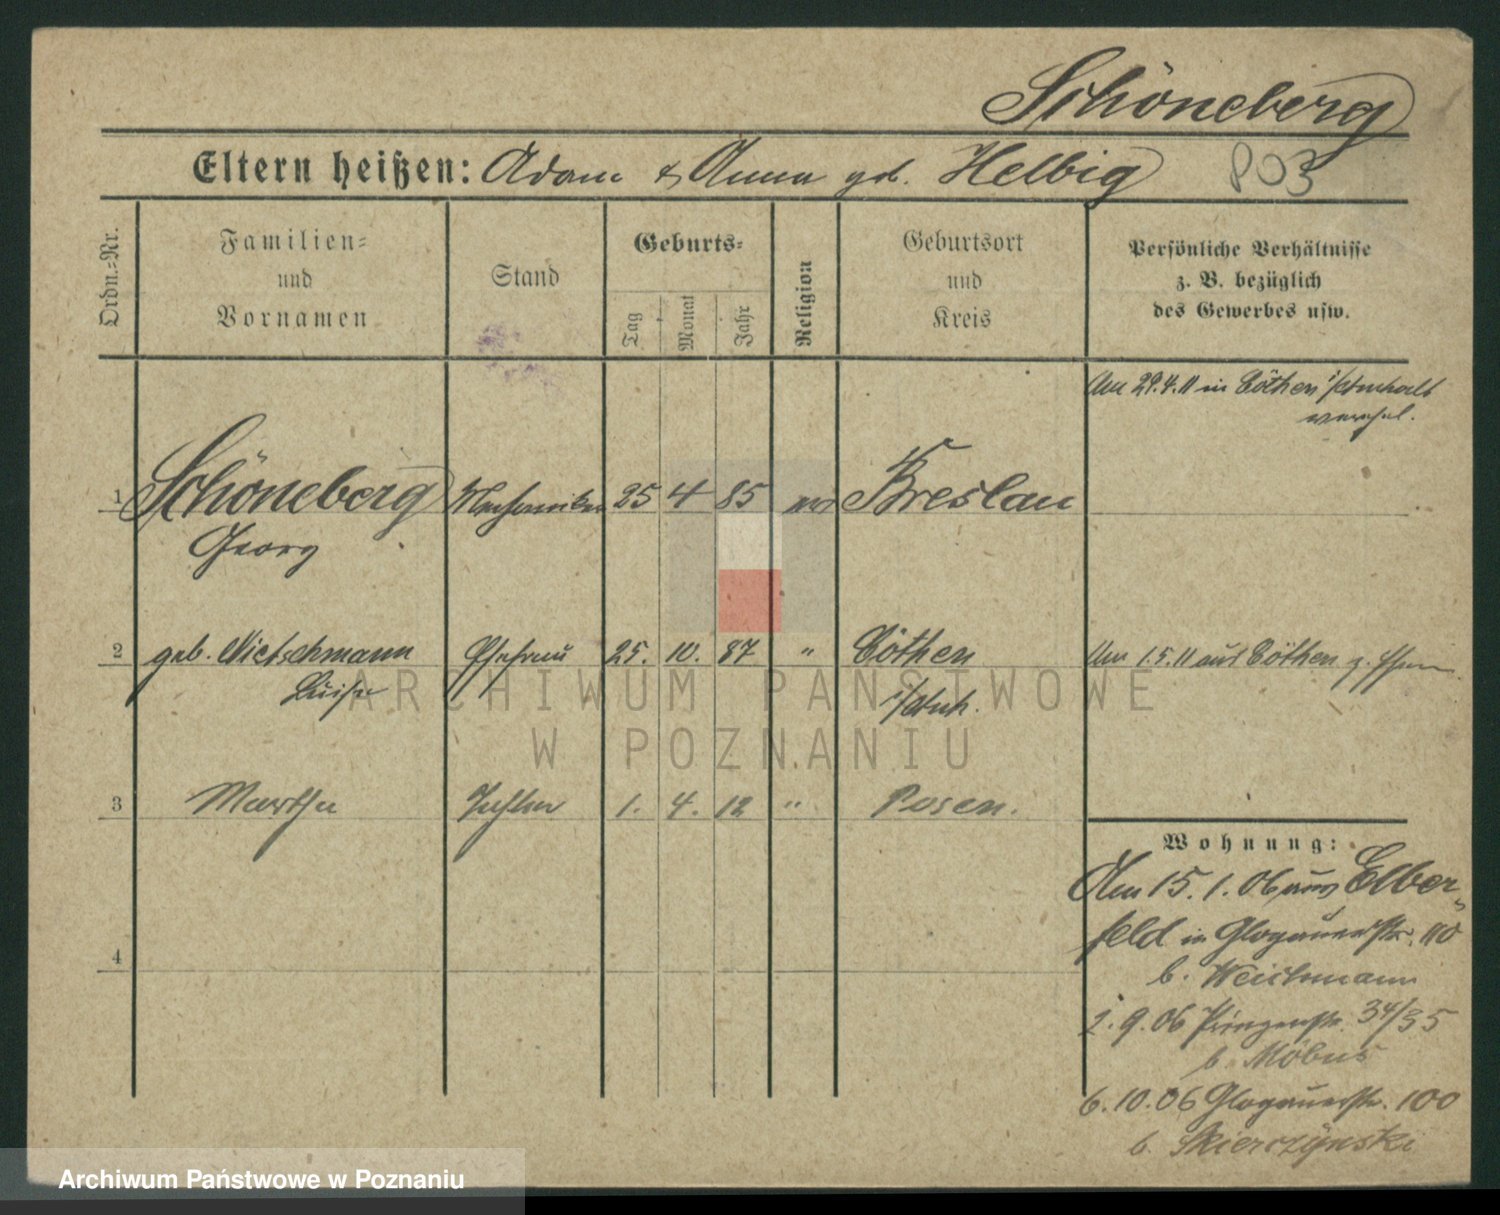 Schöneberg
Eltern heißen: Adam & Anna geb. Helbig 803
Ordn.=Nr.
Familien=
und
Vornamen
Stand
Geburts=
Tag
Monat
Jahr
Religion
Geburtsort
und
Kreis
Persönliche Verhältnisse
z. B. bezüglich
des Gewerbes usw.
Am 29.4.11 in Cöthen i/Anhalt
verehel.
1 Schöneberg Mechaniker 25 4 85 Breslau
Georg
2 geb. Nietschmann Ehefrau 25. 10. 87 " Cöthen Am 1.5.11 aus Cöthen z.
Luise i/Anh.
3 Martha Tochter 1. 4. 12 " Posen.
4
Wohnung:
Am 15.1.06 aus Elber-
feld in Glogauerstr. 110
b. Weichmann
2.9.06 Prinzenstr. 34/35
b. Möbus
6.10.06 Glogauerstr. 100
b. Skierczynski
ARCHIWUM PAŃSTWOWE
W POZNANIU
Archiwum Państwowe w Poznaniu